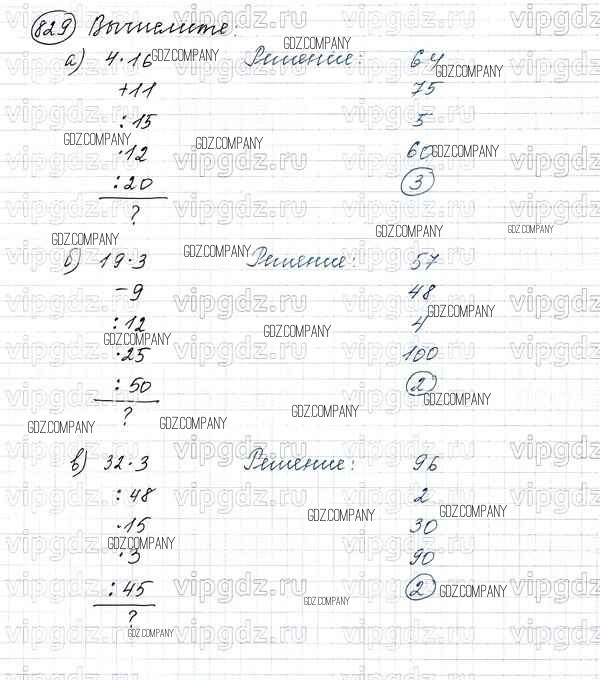 829 Вычислите:
а) 4·16 Решение: 64
+11 75
:15 5
·12 60
:20 3
?
б) 19·3 Решение: 57
-9 48
:12 4
·25 100
:50 2
?
в) 32·3 Решение: 96
:48 2
·15 30
·3 90
:45 2
?
GDZ.COMPANY
vipgdz.ru